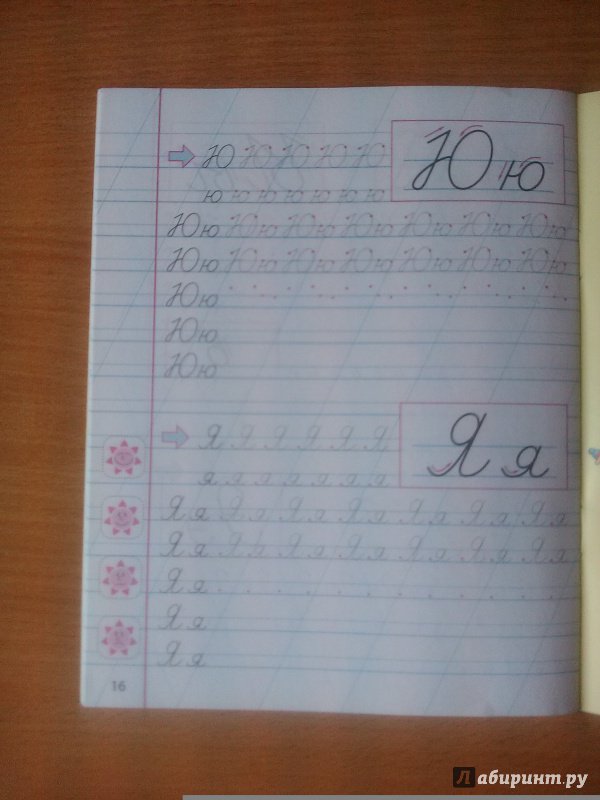 Ю Ю Ю Ю Ю
Ю ю
ю ю ю ю ю ю ю ю
Юю Юю Юю Юю Юю Юю Юю
Юю Юю Юю Юю Юю Юю Юю
Юю
Юю
Юю
Я Я Я Я Я Я
Я я
я я я я я я я
Яя Яя Яя Яя Яя Яя Яя
Яя Яя Яя Яя Яя Яя Яя
Яя
Яя
Яя
16
Лабиринт.ру